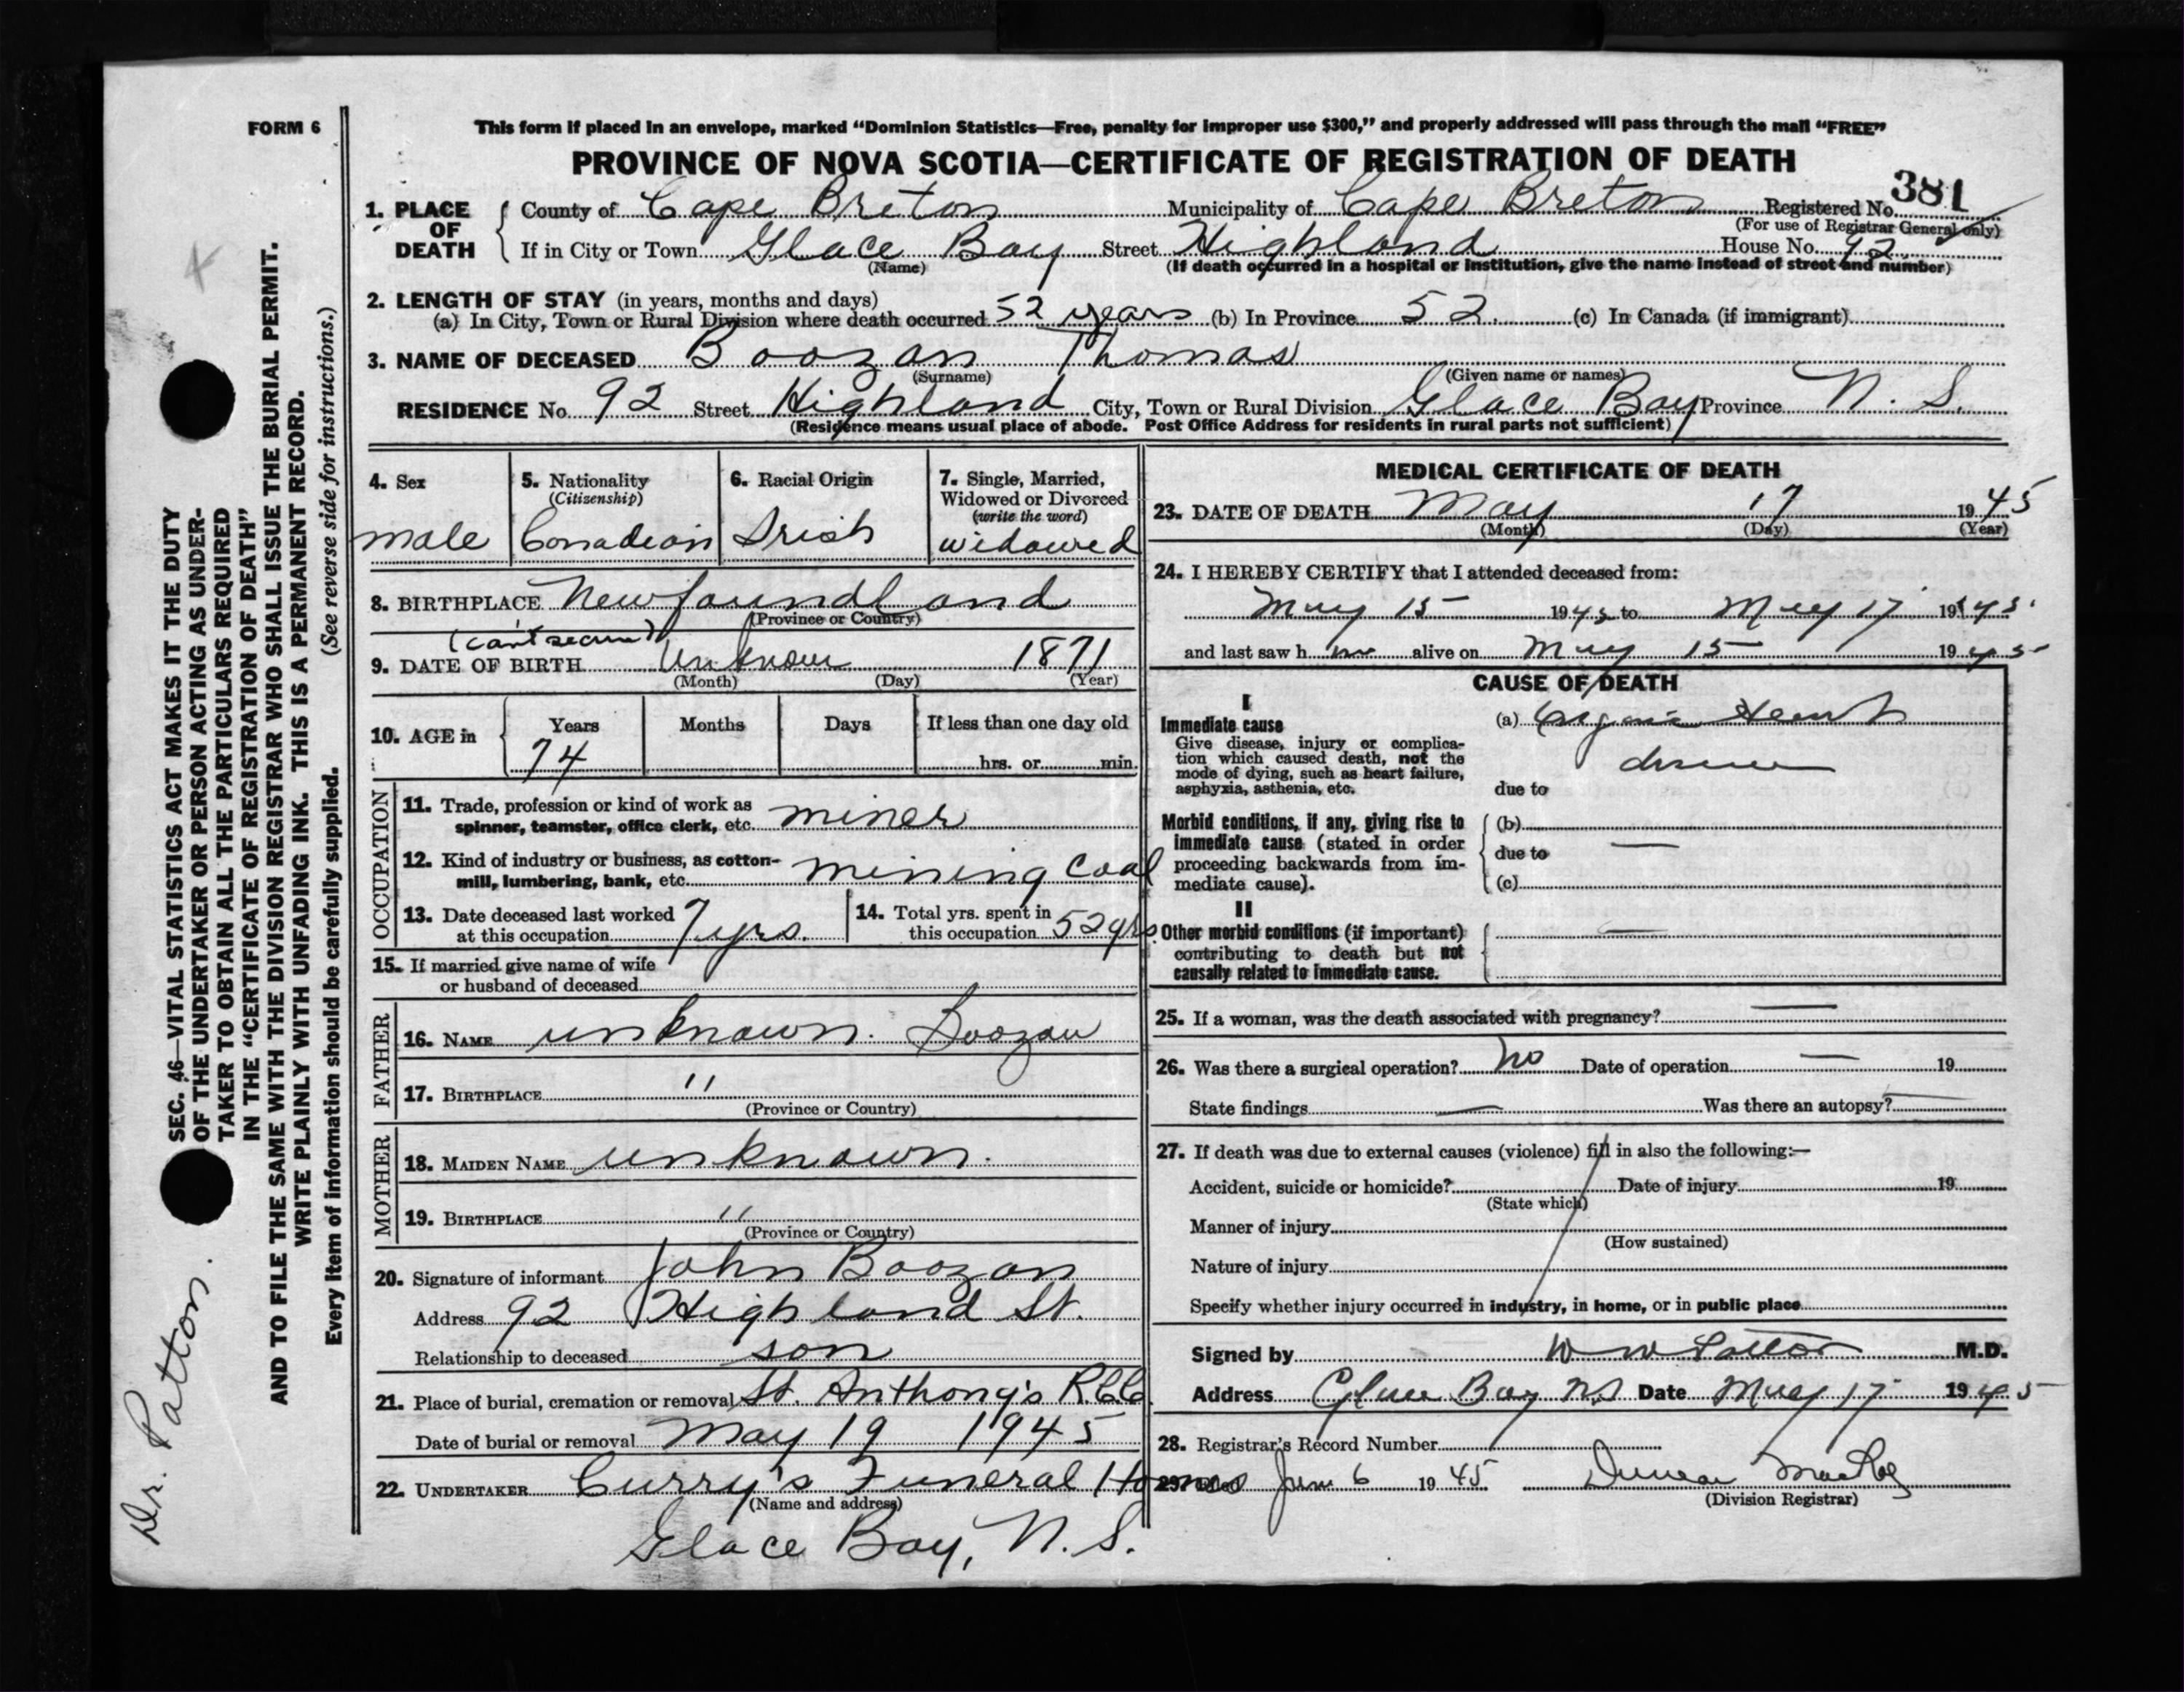 FORM 6
This form if placed in an envelope, marked “Dominion Statistics—Free, penalty for improper use $300,” and properly addressed will pass through the mail “FREE”
PROVINCE OF NOVA SCOTIA—CERTIFICATE OF REGISTRATION OF DEATH
381
1. PLACE OF DEATH
County of Cape Breton Municipality of Cape Breton Registered No.
(For use of Registrar General only)
If in City or Town Glace Bay Street Highland House No. 92
(Name) (If death occurred in a hospital or institution, give the name instead of street and number)
2. LENGTH OF STAY (in years, months and days)
(a) In City, Town or Rural Division where death occurred 52 years (b) In Province 52. (c) In Canada (if immigrant)
3. NAME OF DECEASED Boozan Thomas
(Surname) (Given name or names)
RESIDENCE No. 92 Street Highland City, Town or Rural Division Glace Bay Province N. S.
(Residence means usual place of abode. Post Office Address for residents in rural parts not sufficient)
4. Sex
male
5. Nationality
(Citizenship)
Canadian
6. Racial Origin
Irish
7. Single, Married,
Widowed or Divorced
(write the word)
widowed
8. BIRTHPLACE Newfoundland
(Province or Country)
(can't secure)
9. DATE OF BIRTH Unknown 1871
(Month) (Day) (Year)
10. AGE in
Years Months Days If less than one day old
74 hrs. or min.
OCCUPATION
11. Trade, profession or kind of work as
spinner, teamster, office clerk, etc. miner
12. Kind of industry or business, as cotton-
mill, lumbering, bank, etc. mining Coal
13. Date deceased last worked
at this occupation 7 yrs.
14. Total yrs. spent in
this occupation 52 yrs.
15. If married give name of wife
or husband of deceased
FATHER
16. NAME unknown. Boozan
17. BIRTHPLACE "
(Province or Country)
MOTHER
18. MAIDEN NAME unknown.
19. BIRTHPLACE "
(Province or Country)
20. Signature of informant John Boozan
Address 92 Highland St.
Relationship to deceased son
21. Place of burial, cremation or removal St. Anthony's R.C.C.
Date of burial or removal May 19 1945
22. UNDERTAKER Curry's Funeral Homes
(Name and address)
Glace Bay, N. S.
MEDICAL CERTIFICATE OF DEATH
23. DATE OF DEATH May 17 1945
(Month) (Day) (Year)
24. I HEREBY CERTIFY that I attended deceased from:
May 15 1945 to May 17 1945
and last saw h im alive on May 15 1945
CAUSE OF DEATH
I
Immediate cause
Give disease, injury or complica-
tion which caused death, not the
mode of dying, such as heart failure,
asphyxia, asthenia, etc.
(a) Organic Heart
disease
due to
Morbid conditions, if any, giving rise to
immediate cause (stated in order
proceeding backwards from im-
mediate cause).
(b)
due to —
(c)
II
Other morbid conditions (if important)
contributing to death but not
causally related to immediate cause.
—
25. If a woman, was the death associated with pregnancy? —
26. Was there a surgical operation? No Date of operation — 19
State findings — Was there an autopsy? —
27. If death was due to external causes (violence) fill in also the following:—
Accident, suicide or homicide? Date of injury 19
(State which)
Manner of injury
(How sustained)
Nature of injury
Specify whether injury occurred in industry, in home, or in public place
Signed by W W Patton M.D.
Address Glace Bay NS Date May 17 1945
28. Registrar's Record Number
29. June 6 1945 Duncan MacKay
(Division Registrar)
SEC. 46—VITAL STATISTICS ACT MAKES IT THE DUTY
OF THE UNDERTAKER OR PERSON ACTING AS UNDER-
TAKER TO OBTAIN ALL THE PARTICULARS REQUIRED
IN THE “CERTIFICATE OF REGISTRATION OF DEATH”
AND TO FILE THE SAME WITH THE DIVISION REGISTRAR WHO SHALL ISSUE THE BURIAL PERMIT.
WRITE PLAINLY WITH UNFADING INK. THIS IS A PERMANENT RECORD.
Every item of information should be carefully supplied. (See reverse side for instructions.)
Dr. Patton.